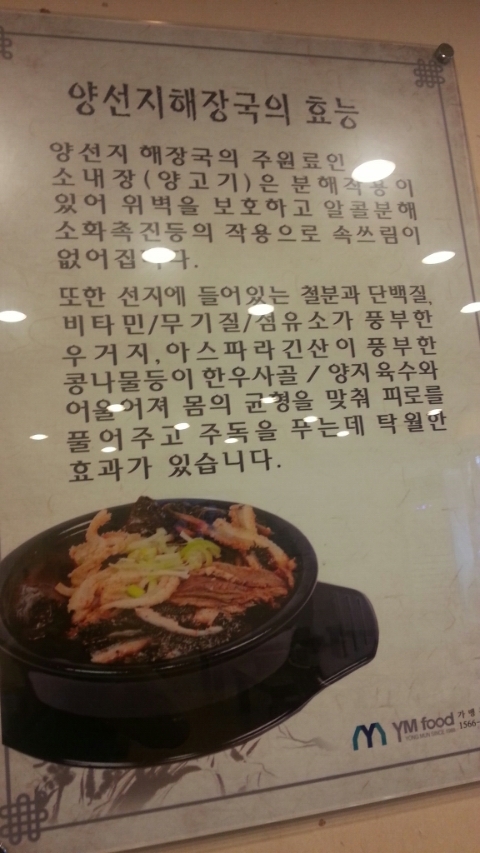 양선지해장국의 효능
양선지 해장국의 주원료인
소내장(양고기)은 분해작용이
있어 위벽을 보호하고 알콜분해
소화촉진등의 작용으로 속쓰림이
없어집니다.
또한 선지에 들어있는 철분과 단백질,
비타민/무기질/섬유소가 풍부한
우거지,아스파라긴산이 풍부한
콩나물등이한우사골/양지육수와
어울어져 몸의 균형을 맞춰 피로를
풀어주고 주독을 푸는데 탁월한
효과가 있습니다.
YM food 가맹
YONG MUN SINCE 1566-